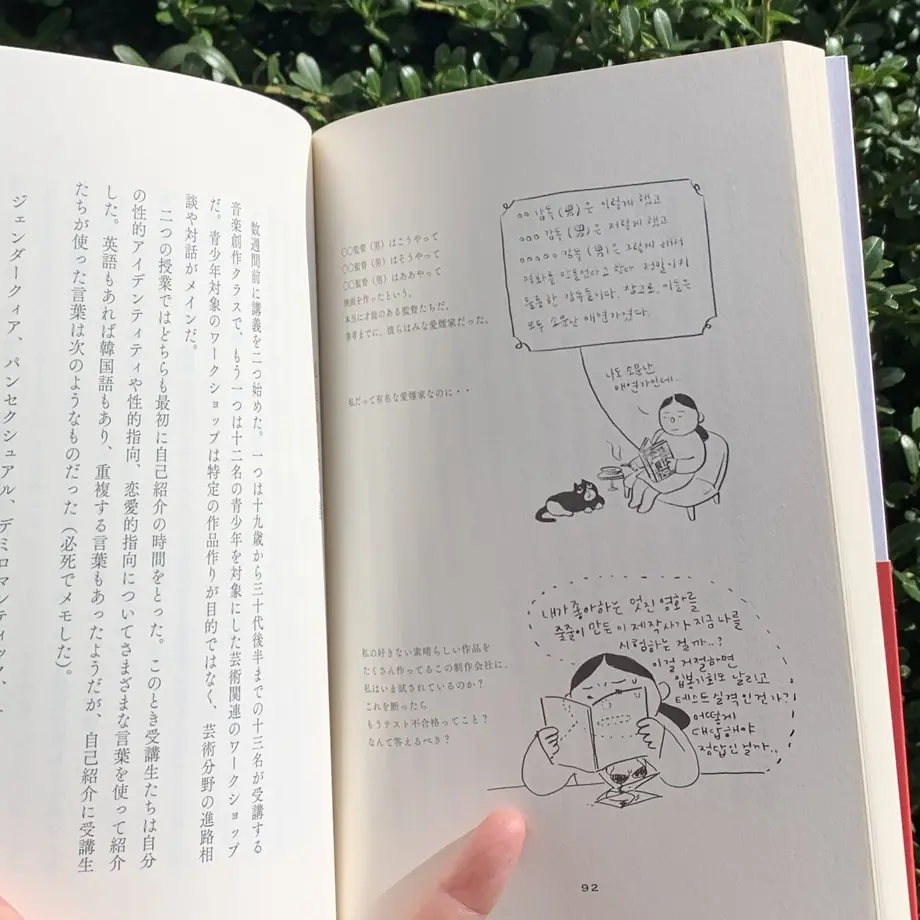 ○○監督（男）はこうやって
○○監督（男）はそうやって
○○監督（男）はああやって
映画を作ったという。
本当に才能のある監督たちだ。
参考までに、彼らはみな愛煙家だった。
○○ 감독(男)은 이렇게 했고
○○○ 감독(男)은 저렇게 했고
○○○○○ 감독(男)은 그렇게 해서
영화를 만들었다고 한다. 정말이지
훌륭한 감독들이다. 참고로, 이들은
모두 소문난 애연가였다.
私だって有名な愛煙家なのに・・
나도 소문난
애연가인데..
私の好きない素晴らしい作品を
たくさん作ってるこの制作会社に、
私はいま試されているのか？
これを断ったら
もうテスト不合格ってこと？
なんて答えるべき？
내가 좋아하는 멋진 영화를
줄줄이 만든 이 제작사가 지금 나를
시험하는 걸까..?
이걸 거절하면
입봉기회도 날리고
테스트 실격인건가?
어떻게
대답해야
정답인걸까..
92
数週間前に講義を二つ始めた。一つは十九歳から三十代後半までの十三名が受講する
音楽創作クラスで、もう一つは十二名の青少年を対象にした芸術関連のワークショップ
だ。青少年対象のワークショップは特定の作品作りが目的ではなく、芸術分野の進路相
談や対話がメインだ。
二つの授業ではどちらも最初に自己紹介の時間をとった。このとき受講生たちは自分
の性的アイデンティティや性的指向、恋愛的指向についてさまざまな言葉を使って紹介
した。英語もあれば韓国語もあり、重複する言葉もあったようだが、自己紹介に受講生
たちが使った言葉は次のようなものだった（必死でメモした）。
ジェンダークィア、パンセクシュアル、デミロマンティック、